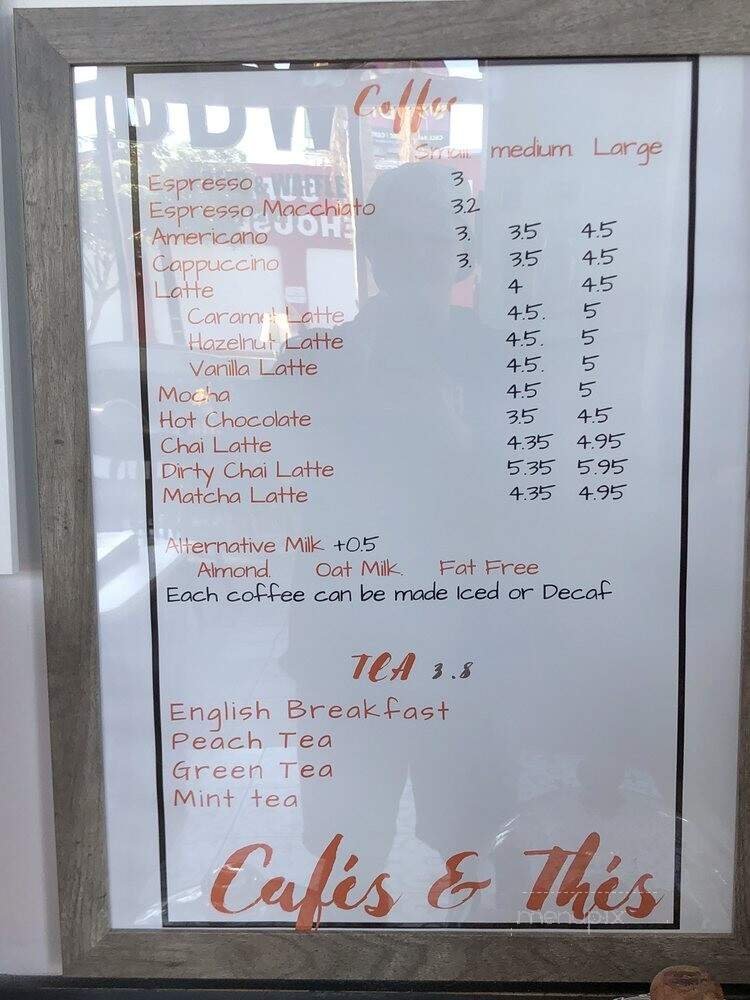 Coffee
Small. medium. Large
Espresso 3
Espresso Macchiato 3.2
Americano 3. 3.5 4.5
Cappuccino 3. 3.5 4.5
Latte 4 4.5
Caramel Latte 4.5. 5
Hazelnut Latte 4.5. 5
Vanilla Latte 4.5. 5
Mocha 4.5 5
Hot Chocolate 3.5 4.5
Chai Latte 4.35 4.95
Dirty Chai Latte 5.35 5.95
Matcha Latte 4.35 4.95
Alternative Milk +0.5
Almond. Oat Milk. Fat Free
Each coffee can be made Iced or Decaf
TEA 3.8
English Breakfast
Peach Tea
Green Tea
Mint tea
Cafés & Thés
menupix